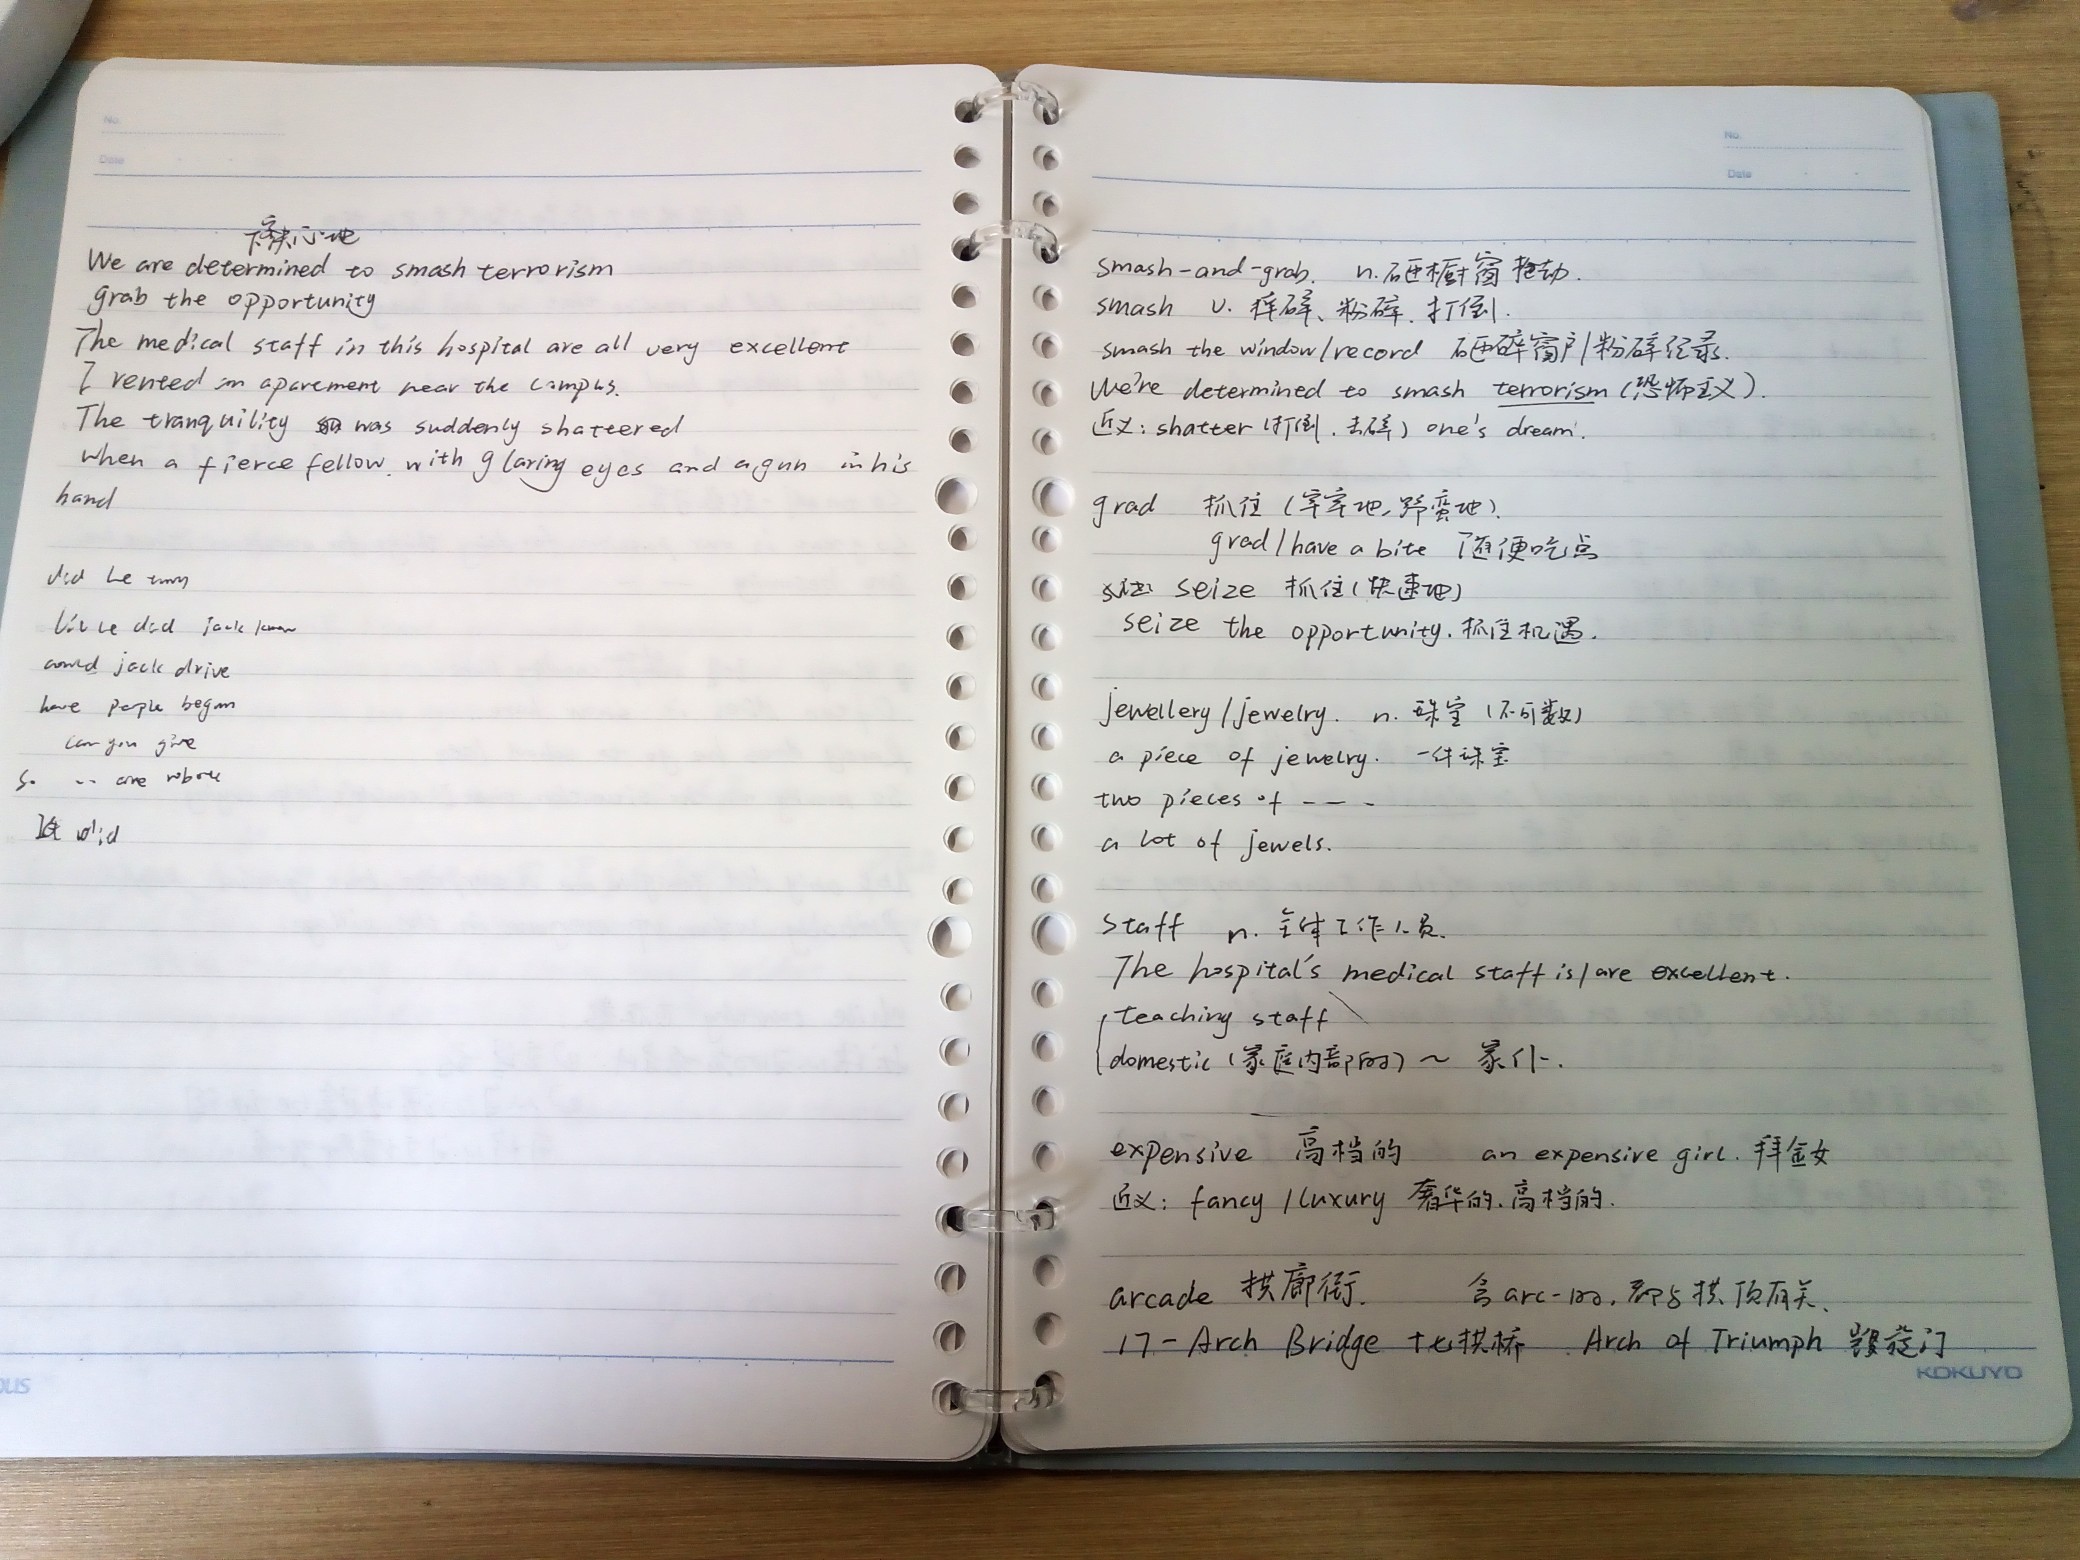 No.
Date
下定决心地
We are determined to smash terrorism
grab the opportunity
The medical staff in this hospital are all very excellent
I rented an aparement near the campus.
The tranquility was suddenly shattered
when a fierce fellow with glaring eyes and a gun in his
hand
did he
did jack know
could jack drive
have people began
can you give
so -- are
did
No.
Date
smash-and-grab. n. 砸橱窗抢劫.
smash v. 摔碎、粉碎、打倒.
smash the window/record 砸碎窗户/粉碎纪录.
We're determined to smash terrorism (恐怖主义).
近义: shatter (打倒、击碎) one's dream.
grad 抓住 (牢牢地,野蛮地).
grad/have a bite 随便吃点
近义 seize 抓住(快速地)
seize the opportunity. 抓住机遇.
jewellery/jewelry. n. 珠宝 (不可数)
a piece of jewelry. 一件珠宝
two pieces of ---
a lot of jewels.
staff n. 全体工作人员.
The hospital's medical staff is/are excellent.
teaching staff
domestic (家庭内部的) ~ 家仆.
expensive 高档的 an expensive girl. 拜金女
近义: fancy/luxury 奢华的.高档的.
arcade 拱廊街. 含arc-的,都与拱顶有关.
17-Arch Bridge 十七拱桥 Arch of Triumph 凯旋门
KOKUYO